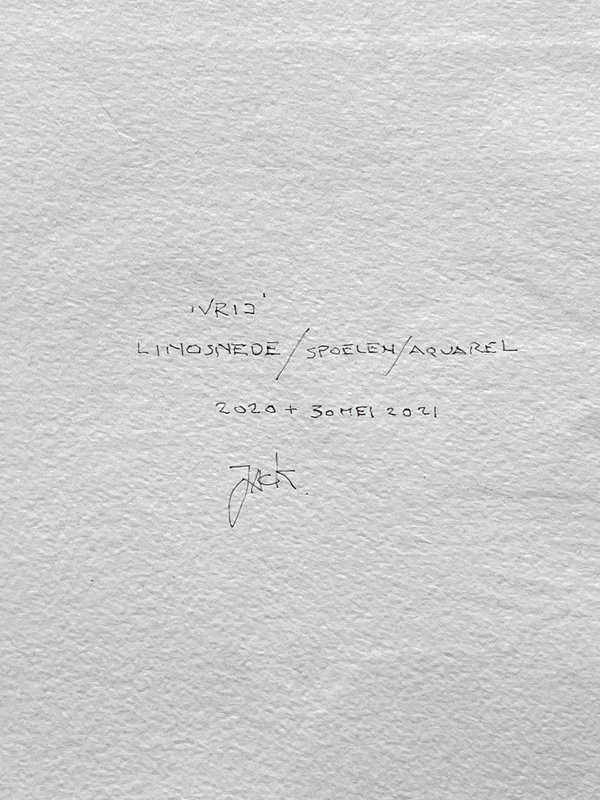 'VRIJ'
LINOSNEDE/SPOELEN/AQUAREL
2020 + 30 MEI 2021
Jack.